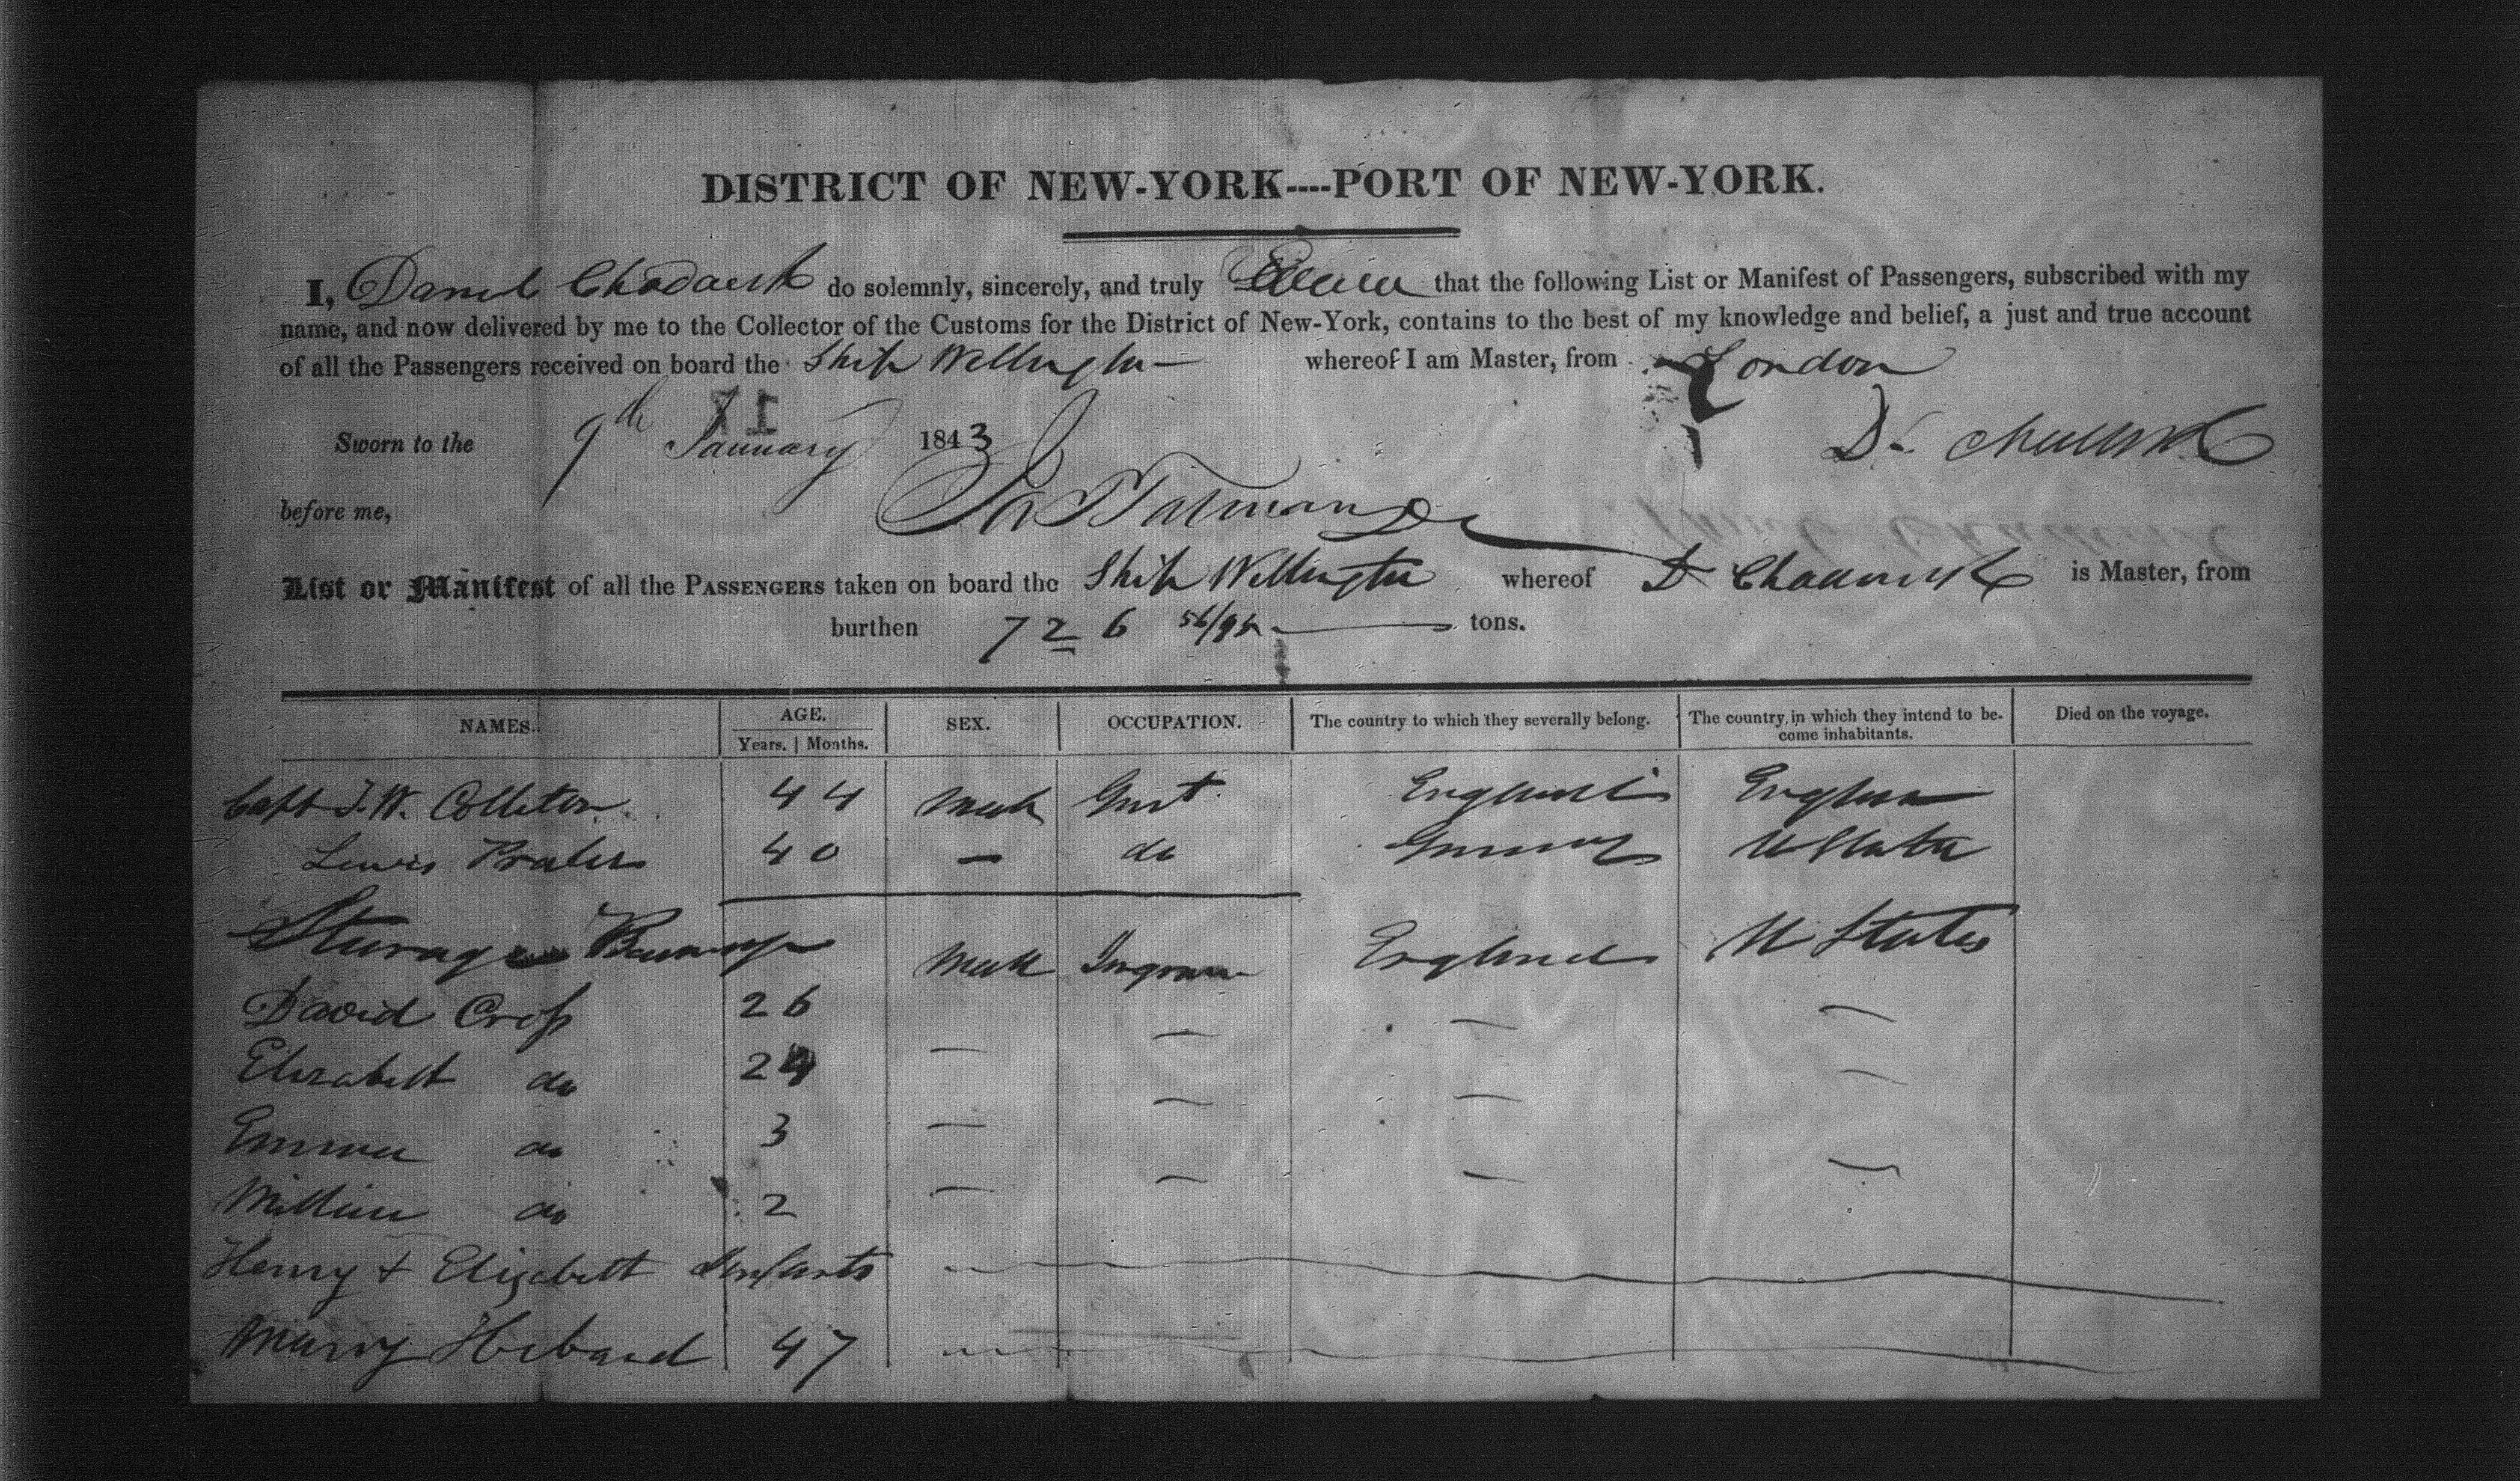 DISTRICT OF NEW-YORK----PORT OF NEW-YORK.
I, Daniel Chadwick do solemnly, sincerely, and truly Swear that the following List or Manifest of Passengers, subscribed with my
name, and now delivered by me to the Collector of the Customs for the District of New-York, contains to the best of my knowledge and belief, a just and true account
of all the Passengers received on board the Ship Wellington whereof I am Master, from London
Sworn to the 9th January 1843 D. Chadwick
before me,
List or Manifest of all the PASSENGERS taken on board the Ship Wellington whereof D Chadwick is Master, from
burthen 726 56/95 tons.
NAMES. AGE. Years. | Months. SEX. OCCUPATION. The country to which they severally belong. The country in which they intend to become inhabitants. Died on the voyage.
Capt J. W. Colleton 44 Male Gent England England
Lewis 40 — do Germany U States
Steerage Male England U States
David Cross 26 — — —
Elizabeth do 24 — — — —
Emma do 3 — — — —
William do 2 — — — —
Henry & Elizabeth Infants
Hibard 47